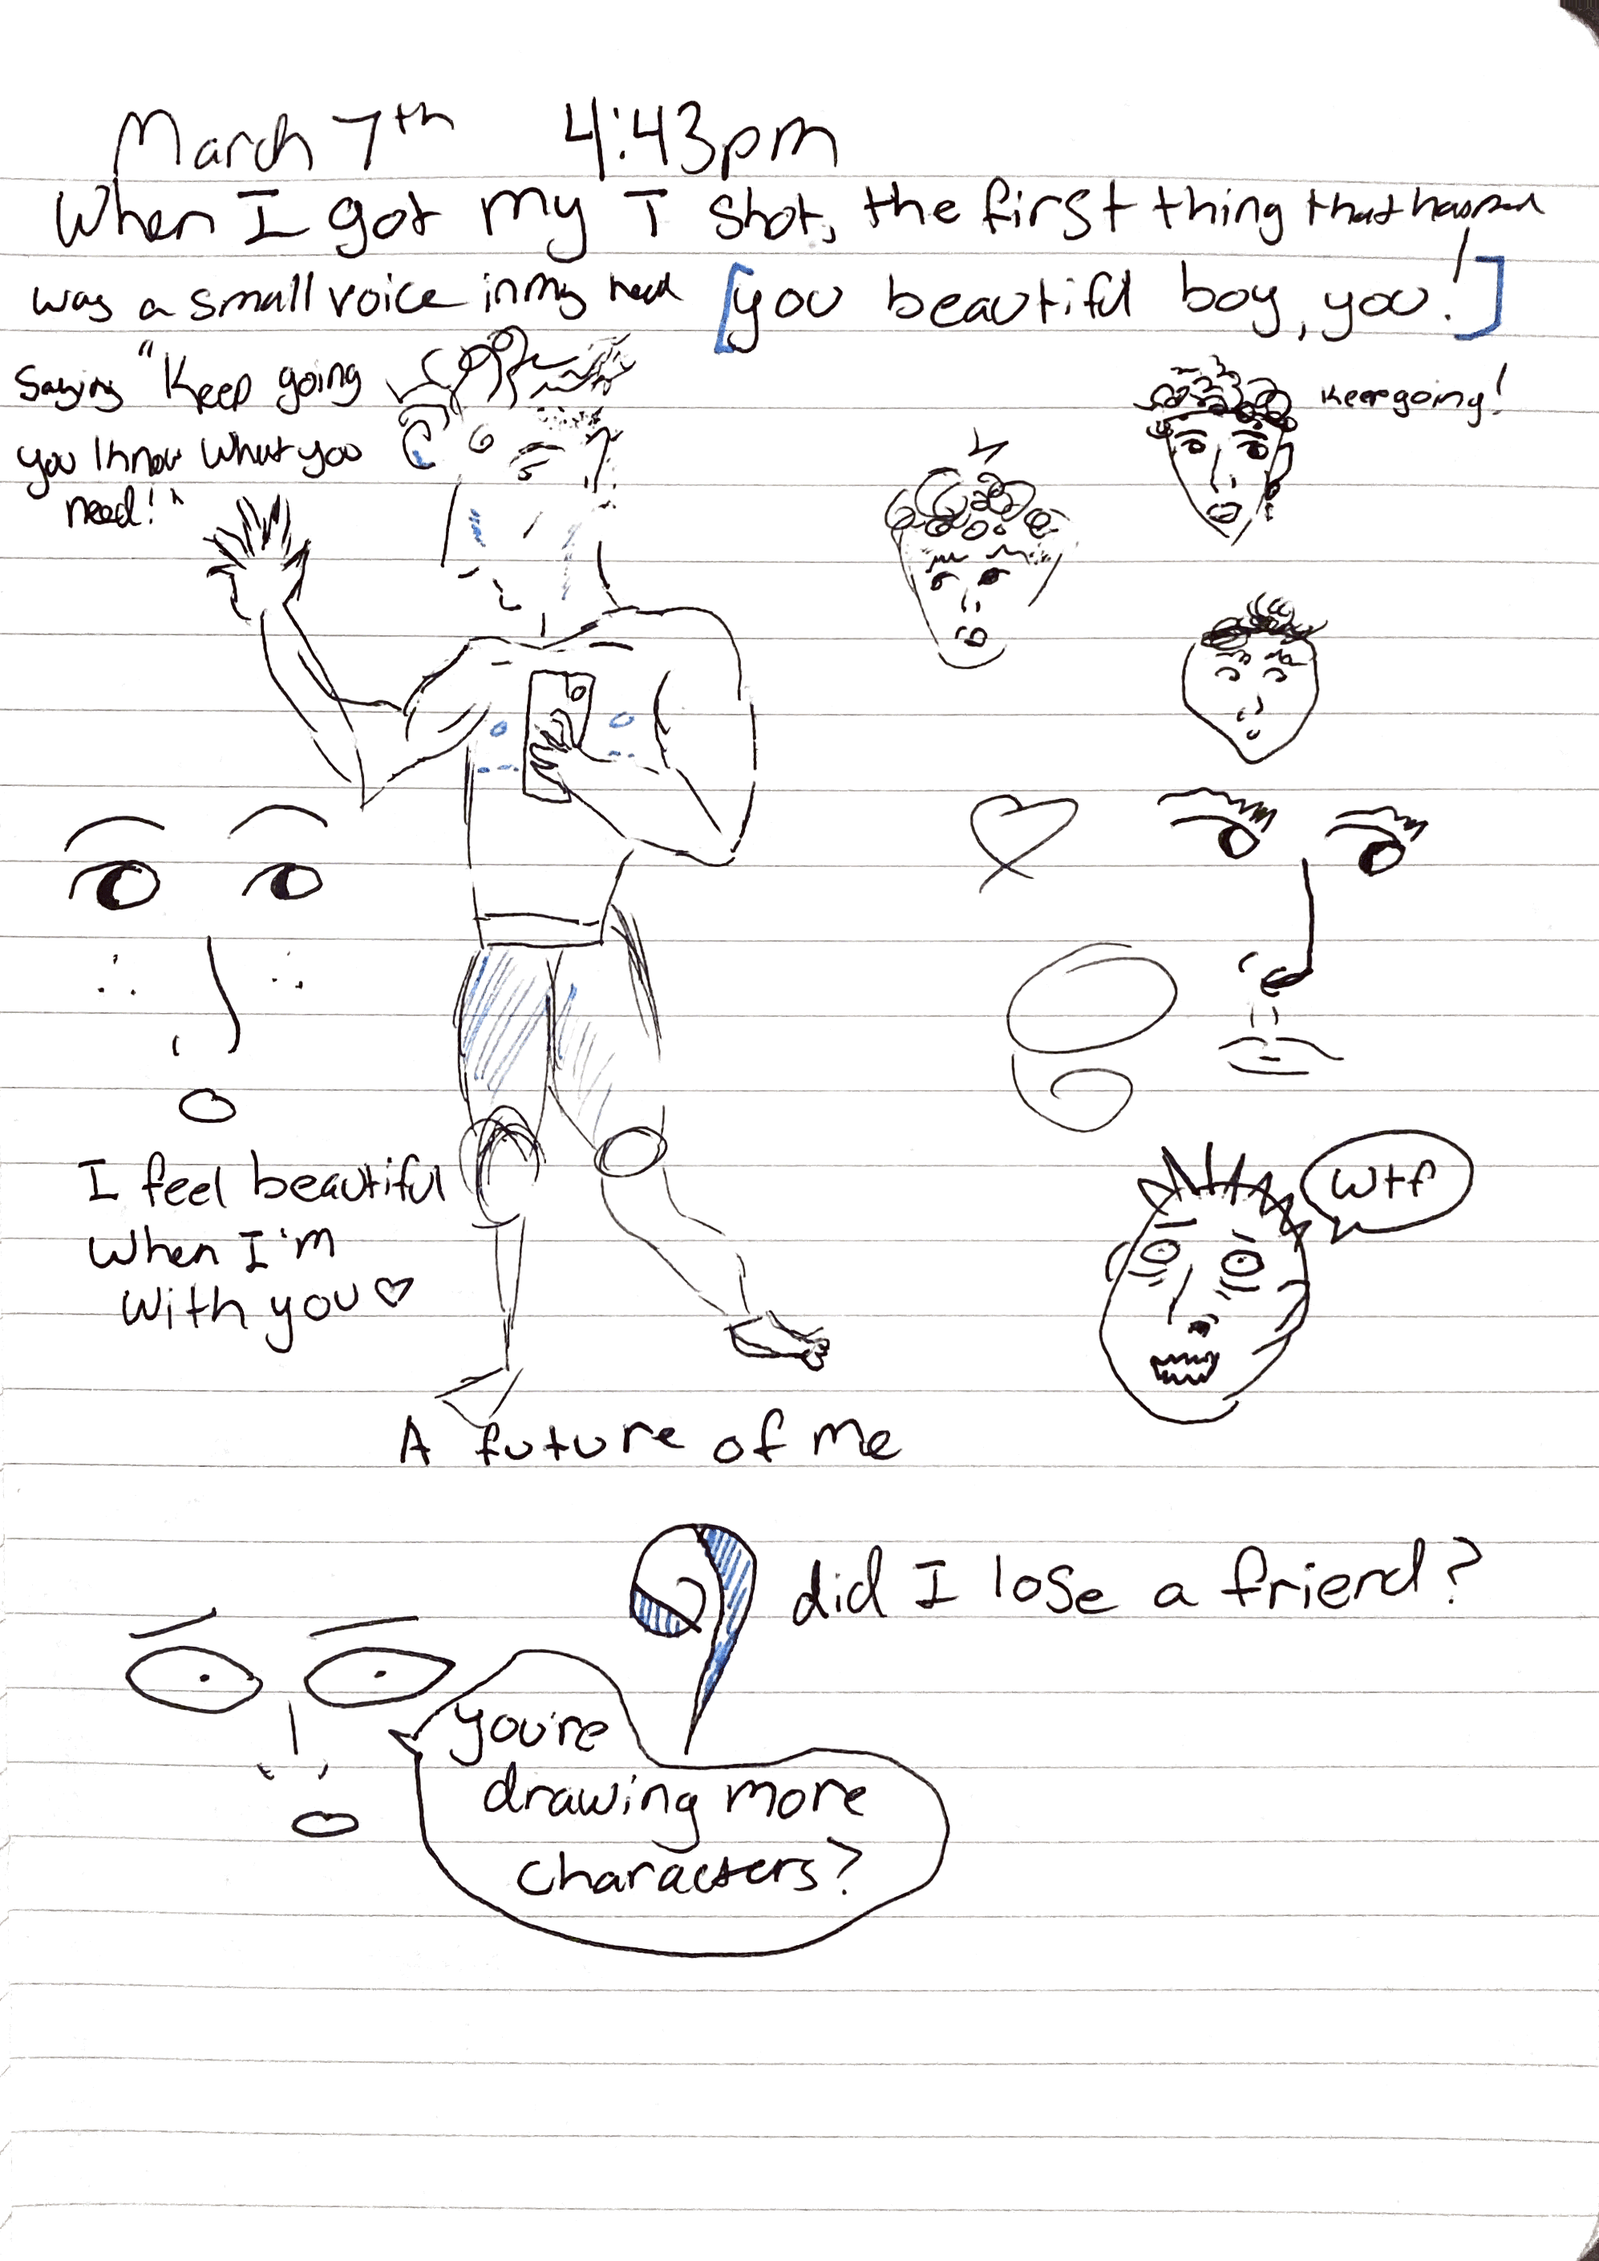 March 7th 4:43pm
When I got my T shot, the first thing that happened
was a small voice in my head [you beautiful boy, you!]
Saying "Keep going
you know what you
need!"
Keep going!
I feel beautiful
When I'm
With you ♡
wtf
A future of me
did I lose a friend?
you're
drawing more
characters?